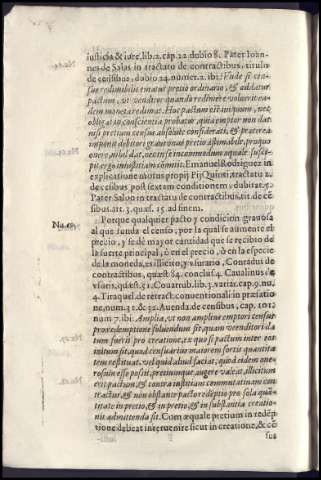 iusticia & iure, lib. 2. cap. 22. dubio 8. Pater Ioan-
nes de Salas in tractatu de contractibus, titulo
de censibus, dubio 24. numer. 2. ibi: Vnde si cen-
sus redimibilis ematur pretio ordinario, & addatur
pactum, vt venditor quando redimere voluerit ea-
dem moneta redimat. Hoc pactum est iniquum, nec
obligat in conscientia probatur, quia emptor non dat
nisi pretium census absolute considerati, & præterea
imponit debitori grauamen pretio æstimabile, pro quo
onere nihil dat, nec in se incommodum æquale suscè-
pit: ergo iniustitiam cõmittit. Emanuel Rodriguez in
explicatione motus proprij Pij Quinti. tractatu 2.
de cēsibus post sextam conditionem, dubitat. 5.
Pater Salon in tractatu de contractibus, tit. de cē-
sibus. art. 3. quæst. 15. ad finem.
No. 19. Porque qualquier pacto y condicion grauosa
al que funda el censo, por la qual se aumente el
precio, y se dè mayor cantidad que se recibio de
la suerte principal, ò en el precio, ò en la especie
de la moneda, es illicito, y vsurario, Conradus de
contractibus, quæst. 84. conclus. 4. Caualinus de
vsuris, quæst. 31. Couarrub. lib. 3. variar. cap. 9. nu.
4. Tiraquel de retract. conuentionali in præfatio-
ne, num. 31. & 32. Auenda. de censibus, cap. 101.
num. 7. ibi: Amplia, vt non amplius emptori census
pro redemptione soluendum sit, quam venditori da-
tum fuerit pro creatione, ex quo si pactum inter con-
tractum
tem restituat, vel quid aliud faciat, quod eidem one-
rosum esse possit, pretiumque augere valeat, illicitum
erit pactum, & contra iustitiam commutatiuam con-
tractus, & non obstante pacto redēptio pro sola quã-
titate in pretio, & in pretio, & in substantia creatio-
nis admittenda sit. Cum æquale pretium in redēp-
tione debeat interuenire sicut in creatione, & cē
sus